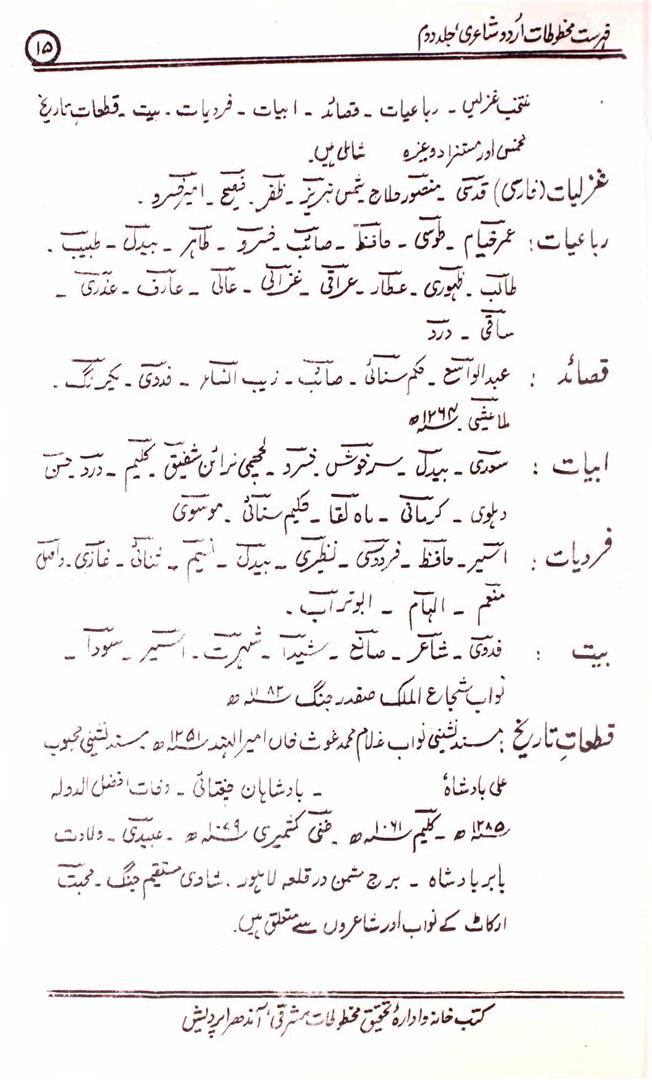 فہرست مخطوطات اُردو شاعری، جلد دوم
۱۵
منتخب غزلیں ۔ رباعیات ۔ قصائد ۔ ابیات ۔ فردیات ۔ بیت ۔ قطعاتِ تاریخ
مخمس اور مستزاد وغیرہ شامل ہیں۔
غزلیات (فارسی) قدسی ۔ منصور حلاج ۔ شمس تبریز ۔ ظفر ۔ فصیح ۔ امیر خسرو ۔
رباعیات : عمر خیام ۔ طوسی ۔ حافظ ۔ صائب ۔ خسرو ۔ طاہر ۔ بیدل ۔ طبیب ۔
طالب ۔ ظہوری ۔ عطار ۔ عراقی ۔ غزالی ۔ عالی ۔ عارف ۔ عذری ۔
ساقی ۔ درد
قصائد : عبدالواسع ۔ حکیم سنائی ۔ صائب ۔ زیب النساء ۔ فدوی ۔ یکرنگ ۔
۱۲۶۴ھ
ابیات : سعدی ۔ بیدل ۔ سرخوش ۔ خسرو ۔ لچھمی نرائن شفیق ۔ کلیم ۔ درد ۔ حسن
دہلوی ۔ کرمانی ۔ ماہ لقا ۔ حکیم سنائی ۔ موسوی
فردیات : اسیر ۔ حافظ ۔ فردوسی ۔ نظیری ۔ بیدل ۔ نسیم ۔ ثنائی ۔ غازی ۔ واصل
منعم ۔ الہام ۔ ابوتراب ۔
بیت : فدوی ۔ شاعر ۔ صانع ۔ شیدا ۔ شہرت ۔ اسیر ۔ سودا ۔
نواب شجاع الملک صفدر جنگ ۱۱۸۲ھ
قطعاتِ تاریخ : مسند نشینی نواب غلام محمد غوث خاں امیر الہند ۱۲۵۱ھ ۔ مسند نشینی محبوب
علی بادشاہ ۔ بادشاہان چغتائی ۔ وفات افضل الدولہ
۱۲۸۵ھ ۔ کلیم ۱۰۶۱ھ ۔ غنی کشمیری ۱۰۷۹ھ ۔ عبیدی ۔ ولادت
بابر بادشاہ ۔ برج شمن در قلعہ لاہور ۔ شادی مستقیم جنگ ۔ محبت
ارکاٹ کے نواب اور شاعروں سے متعلق ہیں۔
کتب خانہ و ادارۂ تحقیق مخطوطات مشرقی، آندھرا پردیش